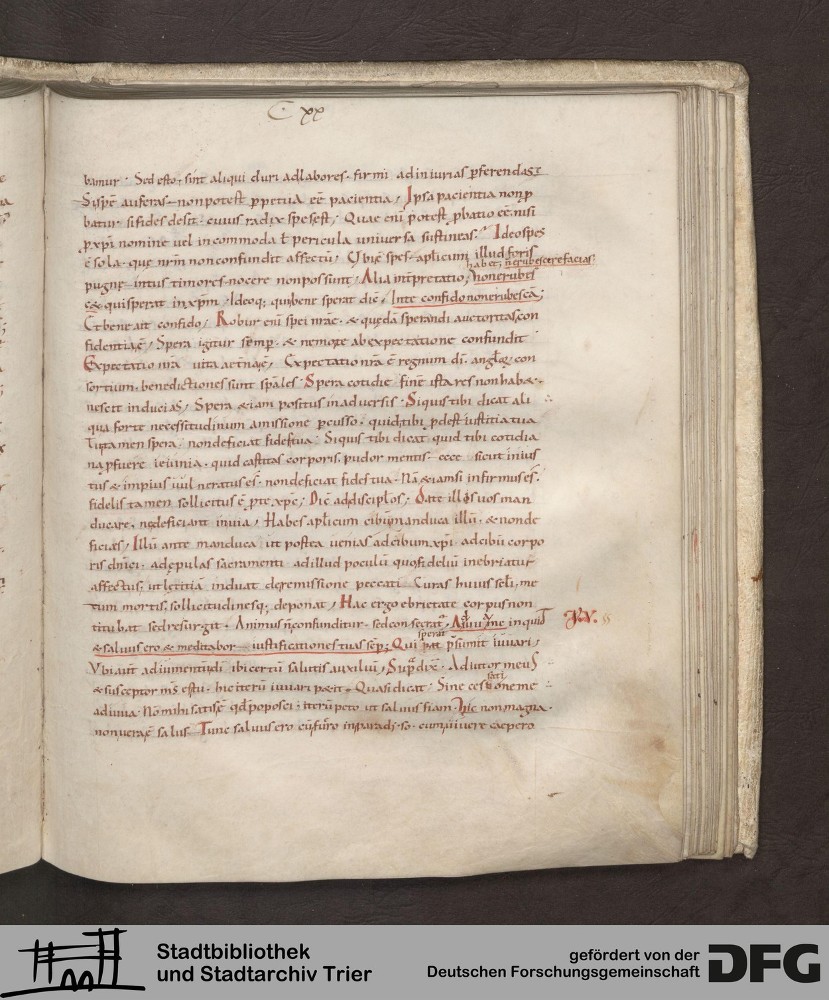 C xx
bamur · Sed esto · sint aliqui duri ad labores · firmi ad iniurias pferendas ·
Si spē auferas · non potest ppetua eē pacientia / Ipsa pacientia non p
batur · si fides desit · cuius radix spes est / Quae eni potest pbatio eē · nisi
p xpi nomine uel incommoda ł pericula uniuersa sustineas · Ideo spes
ē sola · que nrm non confundit affectū / Vbi ē spes · aplicum illud foris
habet · n erubescere facias
pugnę · intus timores · nocere non possunt / Alia inṫpretatio / non erubes
c& qui sperat in xpm / Ideoq; qui bene sperat dic̄ · In te confido non erubescā ·
Et bene ait confido / Robur eni spei nrae · & quędā sperandi auctoritas con
fidentia ē / Spera igitur semp · & nemo te ab expectatione confundit
Expectatio nra uita aeterna ē / Expectatio nra ē regnum dī · angłoꝝ con
sortium · benedictiones sunt spales · Spera cotidie · finē ista res non hab& ·
nescit inducias / Spera &iam positus in aduersis · Si quis tibi dicat ali
qua forte necessitudinum amissione pcusso · quid tibi pdest iustitia tua
Tu tamen spera · non deficiat fides tua · Si quis tibi dicat quid tibi cotidia
na pfuere ieiunia · quid castitas corporis · pudor mentis · ecce sicut inius
tus & impius uulneratus es · non deficiat fides tua · Nā &iam si infirmus es ·
fidelis tamen sollicitus ē p te xpc / Dic̄ ad discipłos / Date illis uos man
ducare · ne deficiant in uia / Habes apłicum cibū manduca illū · & non de
ficies / Illū ante manduca · ut postea uenias ad cibum xpi · ad cibū corpo
ris dnici · ad epulas sacramenti · ad illud poculū quo fideliū inebriatur
affectus · ut lętitiā induat de remissione peccati · Curas huius sęli · me
tum mortis · sollicitudinesq; deponat / Hac ergo ebrietate corpus non
titubat sed resurgit · Animus n confunditur · sed consecrat / Adiuua me inquid
IV.
& saluus ero & meditabor iustificationes tuas semp ; Qui sperat psumit iuuari /
Vbi aut adiumentū dī · ibi certū salutis auxiliū / Supra dix̄ · Adiutor meus
& susceptor ms es tu · hic iterū iuuari petit · Quasi dicat · Sine cessatione me
adiuua · Nō mihi satis ē qd poposci · iterū peto ut saluus fiam · Hic non magna ·
non uera ē salus · Tunc saluus ero cū fuero in paradiso · cum uiuere caepero
Stadtbibliothek
und Stadtarchiv Trier
gefördert von der
Deutschen Forschungsgemeinschaft
DFG